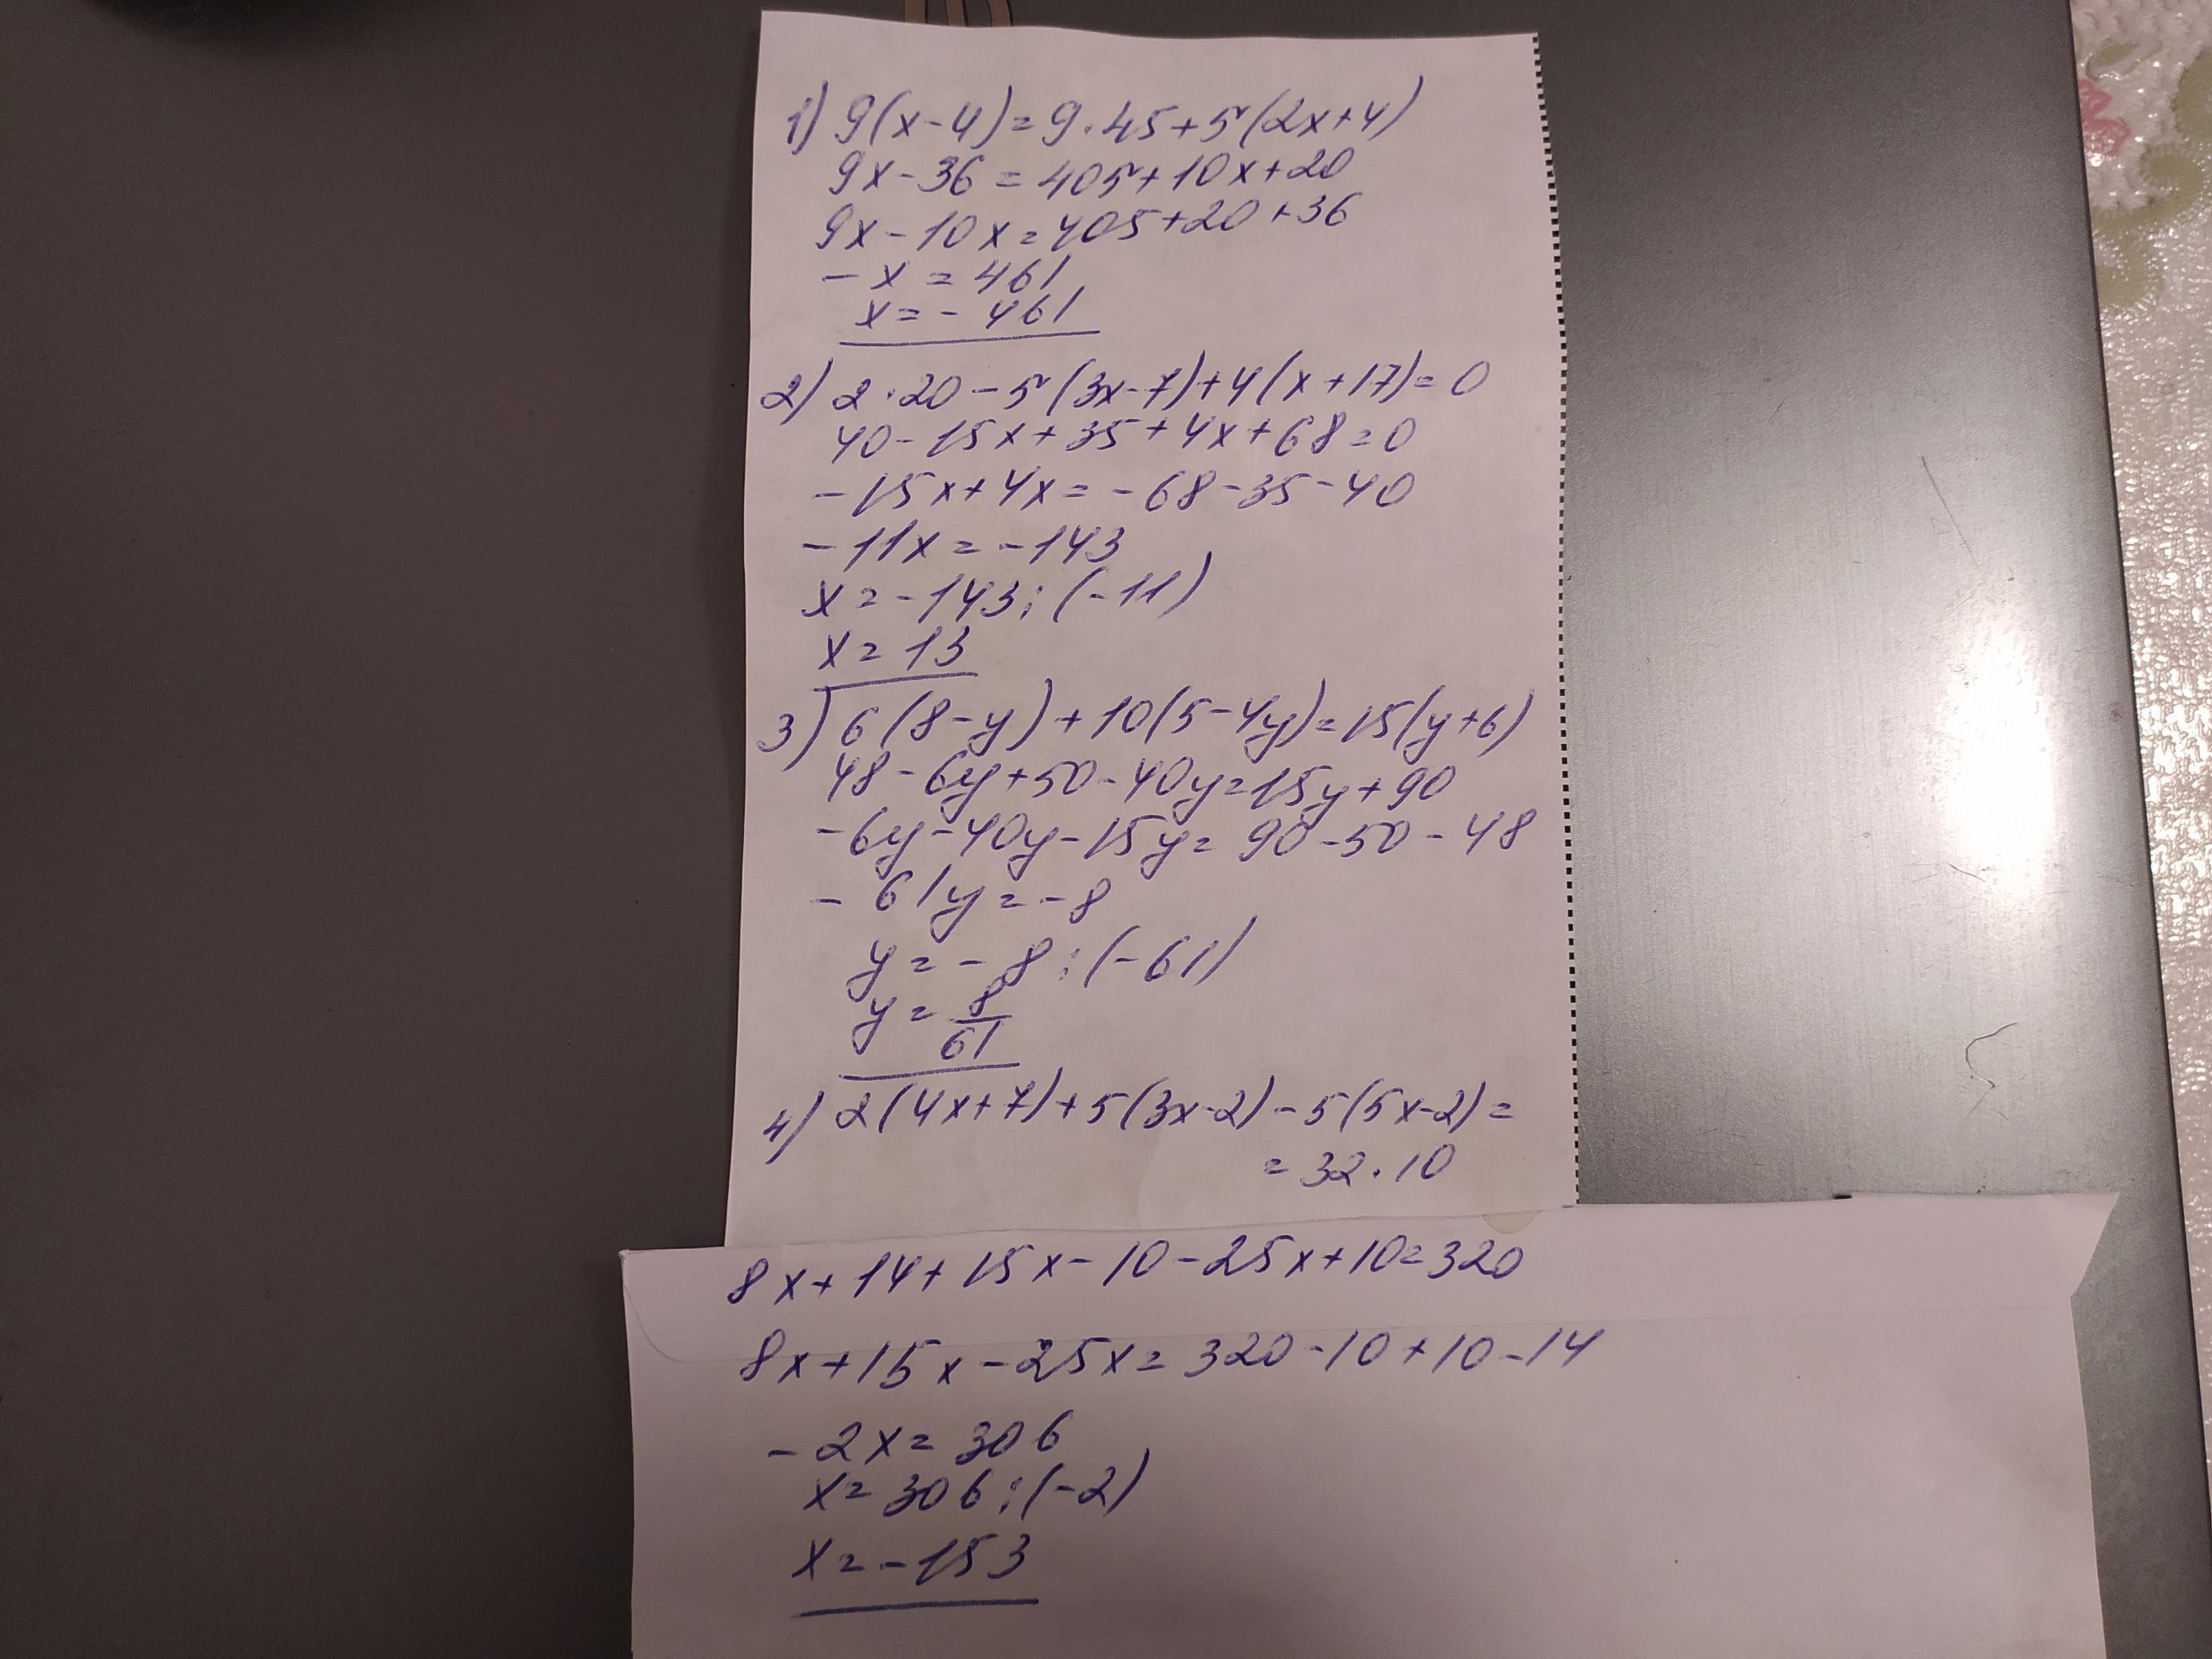 1) 9(x-4)=9·45+5(2x+4)
9x-36=405+10x+20
9x-10x=405+20+36
-x=461
x=-461
2) 2·20-5(3x-7)+4(x+17)=0
40-15x+35+4x+68=0
-15x+4x=-68-35-40
-11x=-143
x=-143:(-11)
x=13
3) 6(8-y)+10(5-4y)=15(y+6)
48-6y+50-40y=15y+90
-6y-40y-15y=90-50-48
-61y=-8
y=-8:(-61)
y=8/61
4) 2(4x+7)+5(3x-2)-5(5x-2)=
=32·10
8x+14+15x-10-25x+10=320
8x+15x-25x=320-10+10-14
-2x=306
x=306:(-2)
x=-153